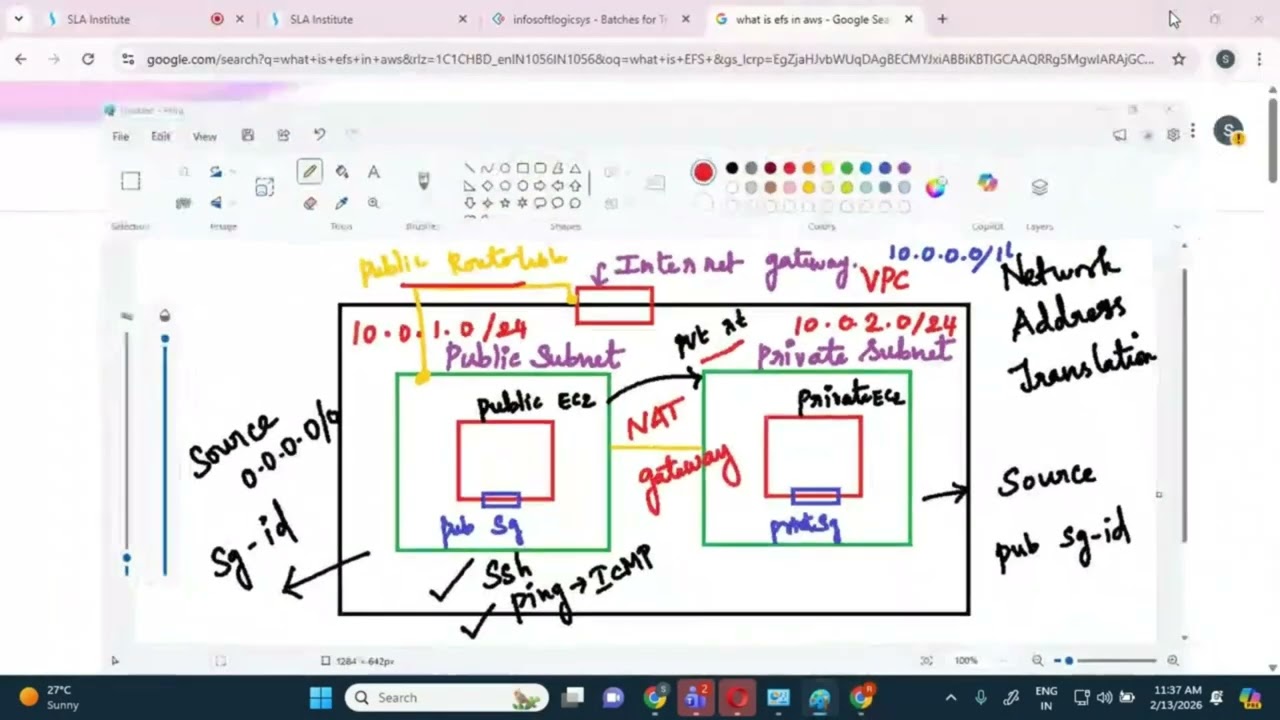 SLA Institute
SLA Institute
infosoftlogicsys - Batches for T
what is efs in aws - Google Sea
google.com/search?q=what+is+efs+in+aws&rlz=1C1CHBD_enIN1056IN1056&oq=what+is+EFS+&gs_lcrp=EgZjaHJvbWUqDAgBECMYJxiABBiKBTIGCAAQRRg5MgwIARAjGC...
S
File Edit View
S
Selection Image Tools Brushes Shapes Colors Copilot Layers
Public Routetable
Internet gateway.
10.0.0.0/16
VPC
Network
Address
Translation
10.0.1.0/24
Public Subnet
pvt rt
10.0.2.0/24
Private Subnet
public EC2
Private EC2
NAT
gateway
Source
0.0.0.0/0
Sg-id
pub Sg
Source
pub sg-id
Ssh
ping → ICMP
1284 × 642px
100%
27°C
Sunny
Search
2
ENG
IN
11:37 AM
2/13/2026